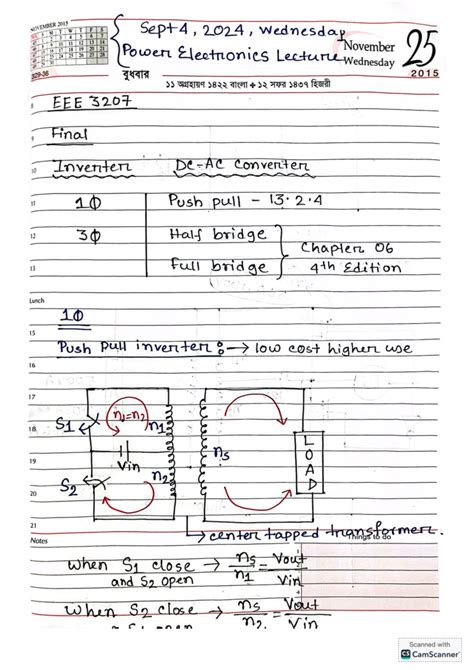 NOVEMBER 2015
329-36
Sept 4, 2024, Wednesday
Power Electronics Lecture
বুধবার
November
Wednesday
25
2015
১১ অগ্রহায়ণ ১৪২২ বাংলা ❖ ১২ সফর ১৪৩৭ হিজরী
8
EEE 3207
Final
10
Inverter DC-AC Converter
11
1Φ Push pull - 13.2.4
12
3Φ Half bridge
Chapter 06
13
Full bridge 4th Edition
Lunch
1Φ
15
Push pull inverter: → low cost higher use
17
18
S1 n1=n2 n1
19
Vin ns LOAD
20
S2 n2
21
→ center tapped transformer.
Notes
Things to do
when S1 close → ns/n1 = Vout/Vin
and S2 open
when S2 close → ns/n2 = Vout/Vin
Scanned with
CS CamScanner